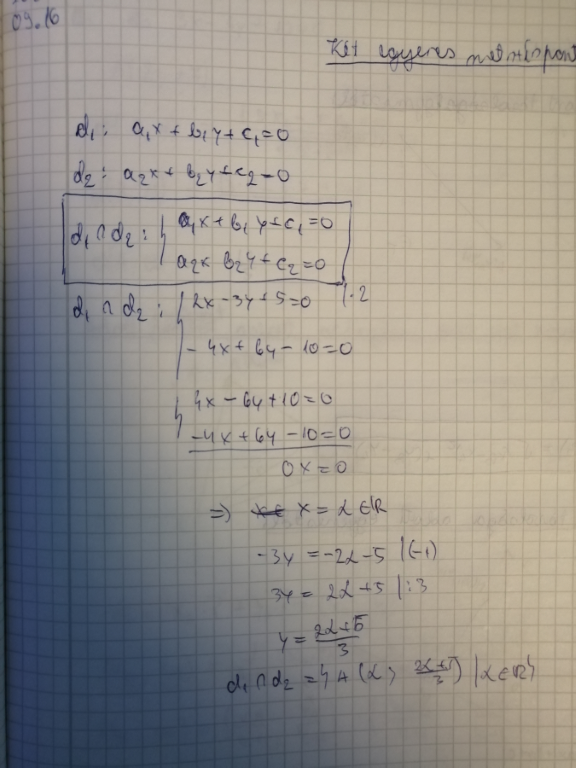 09.16
Két egyenes metszéspont
d₁: a₁x + b₁y + c₁ = 0
d₂: a₂x + b₂y + c₂ = 0
d₁ ∩ d₂: { a₁x + b₁y + c₁ = 0
a₂x b₂y + c₂ = 0
d₁ ∩ d₂: { 2x - 3y + 5 = 0 |·2
- 4x + 6y - 10 = 0
{ 4x - 6y + 10 = 0
-4x + 6y - 10 = 0
0x = 0
⇒ x = α ∈ ℝ
-3y = -2α - 5 |(-1)
3y = 2α + 5 |:3
y = (2α+5)/3
d₁ ∩ d₂ = { A (α; (2α+5)/3) | α ∈ ℝ }